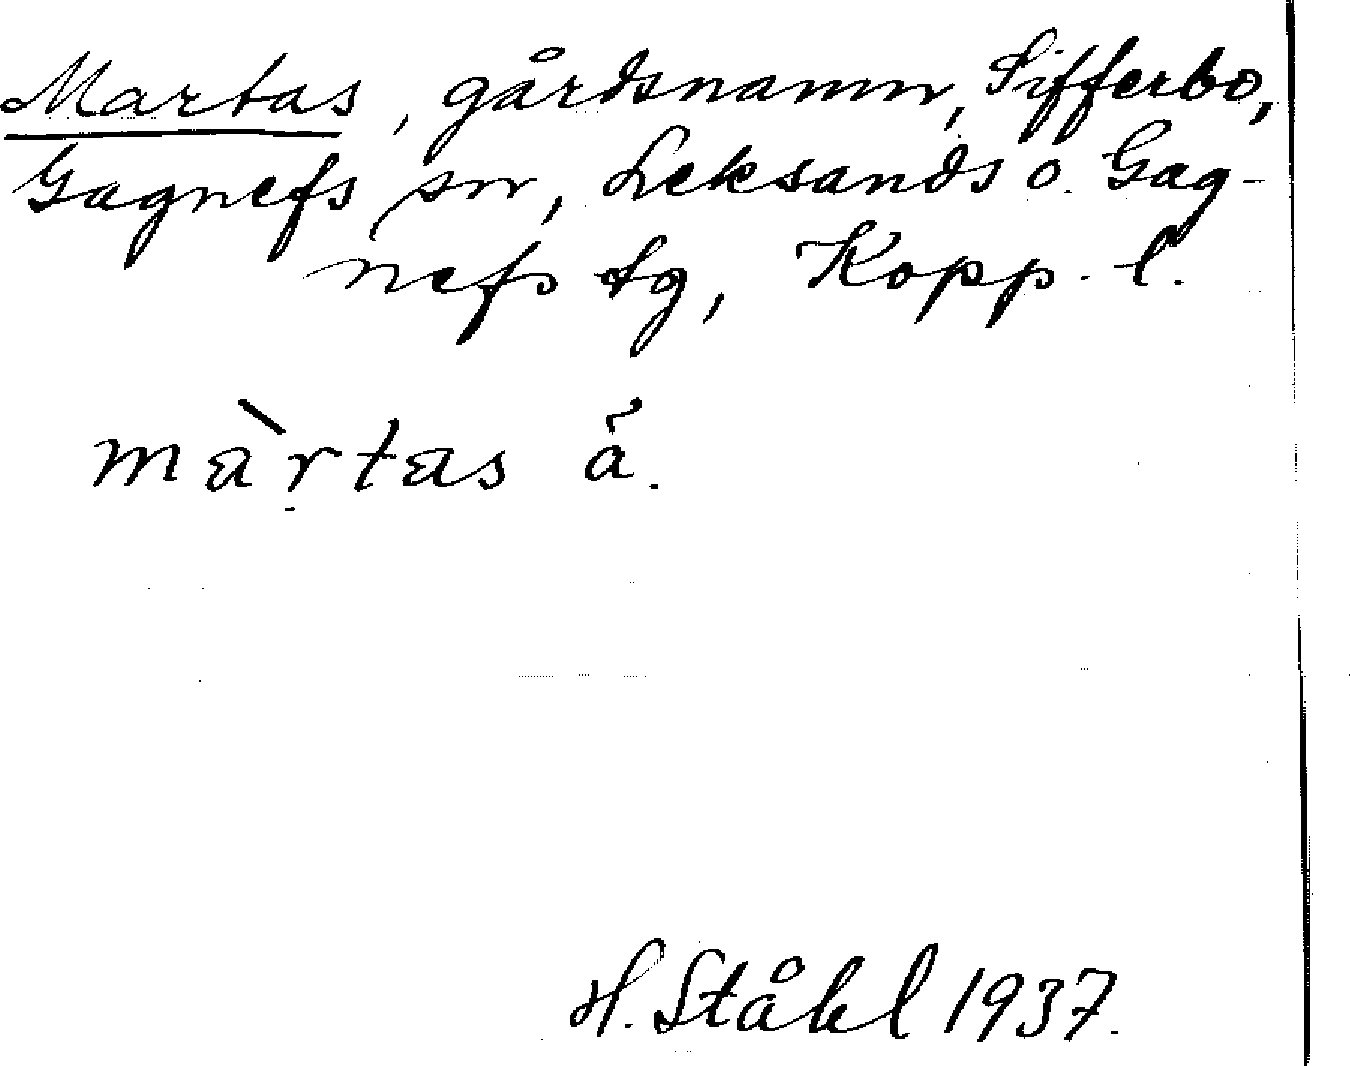 Martas, gårdsnamn, Sifferbo,
Gagnefs sn, Leksands o. Gag-
nefs tg, Kopp. l.
màrtas ã.
H. Ståhl 1937.